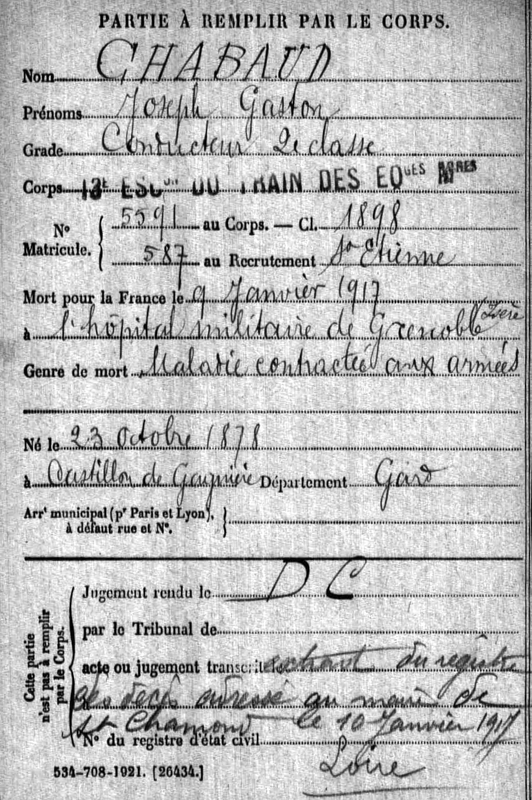 PARTIE À REMPLIR PAR LE CORPS.
Nom CHABAUD
Prénoms Joseph Gaston
Grade Conducteur 2e classe
Corps 13E ESCON DU TRAIN DES EQUGES MRES
N° Matricule. { 5591 au Corps. — Cl. 1898
587 au Recrutement St Etienne
Mort pour la France le 9 Janvier 1917
à l'hôpital militaire de Grenoble Isère
Genre de mort Maladie contractée aux armées
Né le 23 Octobre 1878
à Castillon de Gagnière Département Gard
Arrt municipal (pr Paris et Lyon), à défaut rue et N°. }
Cette partie n'est pas à remplir par le Corps.
Jugement rendu le D C
par le Tribunal de
acte ou jugement transcrit le extrait du registre
des décès adressé au maire de
St Chamond le 10 Janvier 1917
N° du registre d'état civil
Loire
534-708-1921. [26434.]